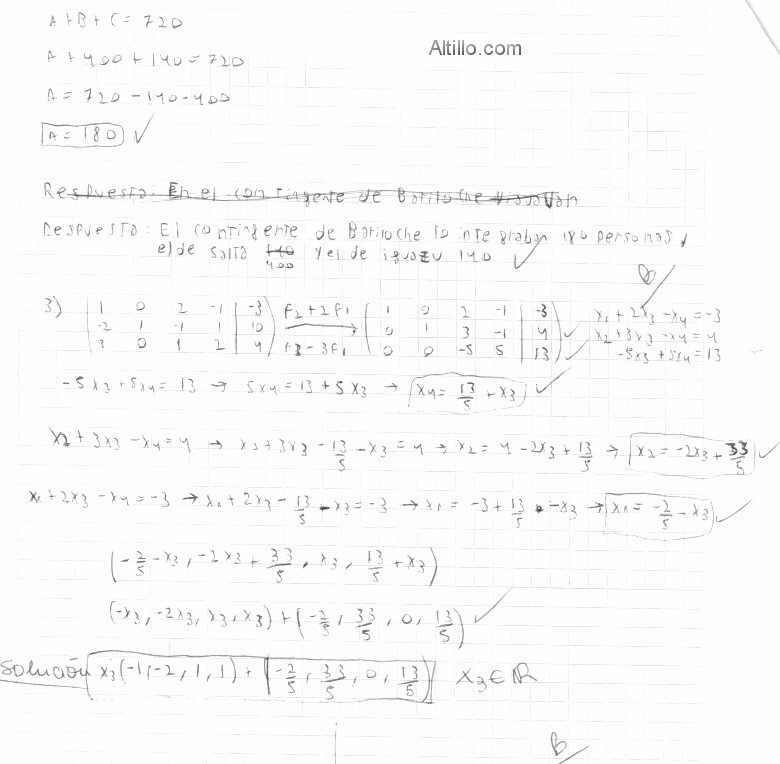 A + B + C = 720
Altillo.com
A + 400 + 140 = 720
A = 720 - 140 - 400
A = 180
Respuesta: En el contingente de Bariloche
Respuesta: El contingente de Bariloche lo integraban 180 personas,
el de salta 140 400 y el de iguazu 140
B
3) | 1 0 2 -1 | -3 | F2 + 2F1 | 1 0 2 -1 | -3 | x1 + 2x3 - x4 = -3
| -2 1 -1 1 | 10 | → | 0 1 3 -1 | 4 | x2 + 3x3 - x4 = 4
| 3 0 1 2 | 4 | F3 - 3F1 | 0 0 -5 5 | 13 | -5x3 + 5x4 = 13
-5x3 + 5x4 = 13 → 5x4 = 13 + 5x3 → x4 = 13/5 + x3
x2 + 3x3 - x4 = 4 → x2 + 3x3 - 13/5 - x3 = 4 → x2 = 4 - 2x3 + 13/5 → x2 = -2x3 + 33/5
x1 + 2x3 - x4 = -3 → x1 + 2x3 - 13/5 - x3 = -3 → x1 = -3 + 13/5 - x3 → x1 = -2/5 - x3
(-2/5 - x3, -2x3 + 33/5, x3, 13/5 + x3)
(-x3, -2x3, x3, x3) + (-2/5, 33/5, 0, 13/5)
Solución x3(-1, -2, 1, 1) + (-2/5, 33/5, 0, 13/5) x3 ∈ R
B